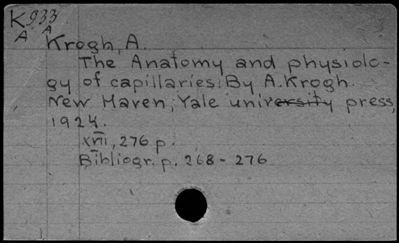 K933
A A
Krogh, A.
The Anatomy and physiolo-
gy of capillaries. By A. Krogh.
New Haven, Yale university press,
1924.
XVII, 276 p.
Bibliogr. p. 268-276